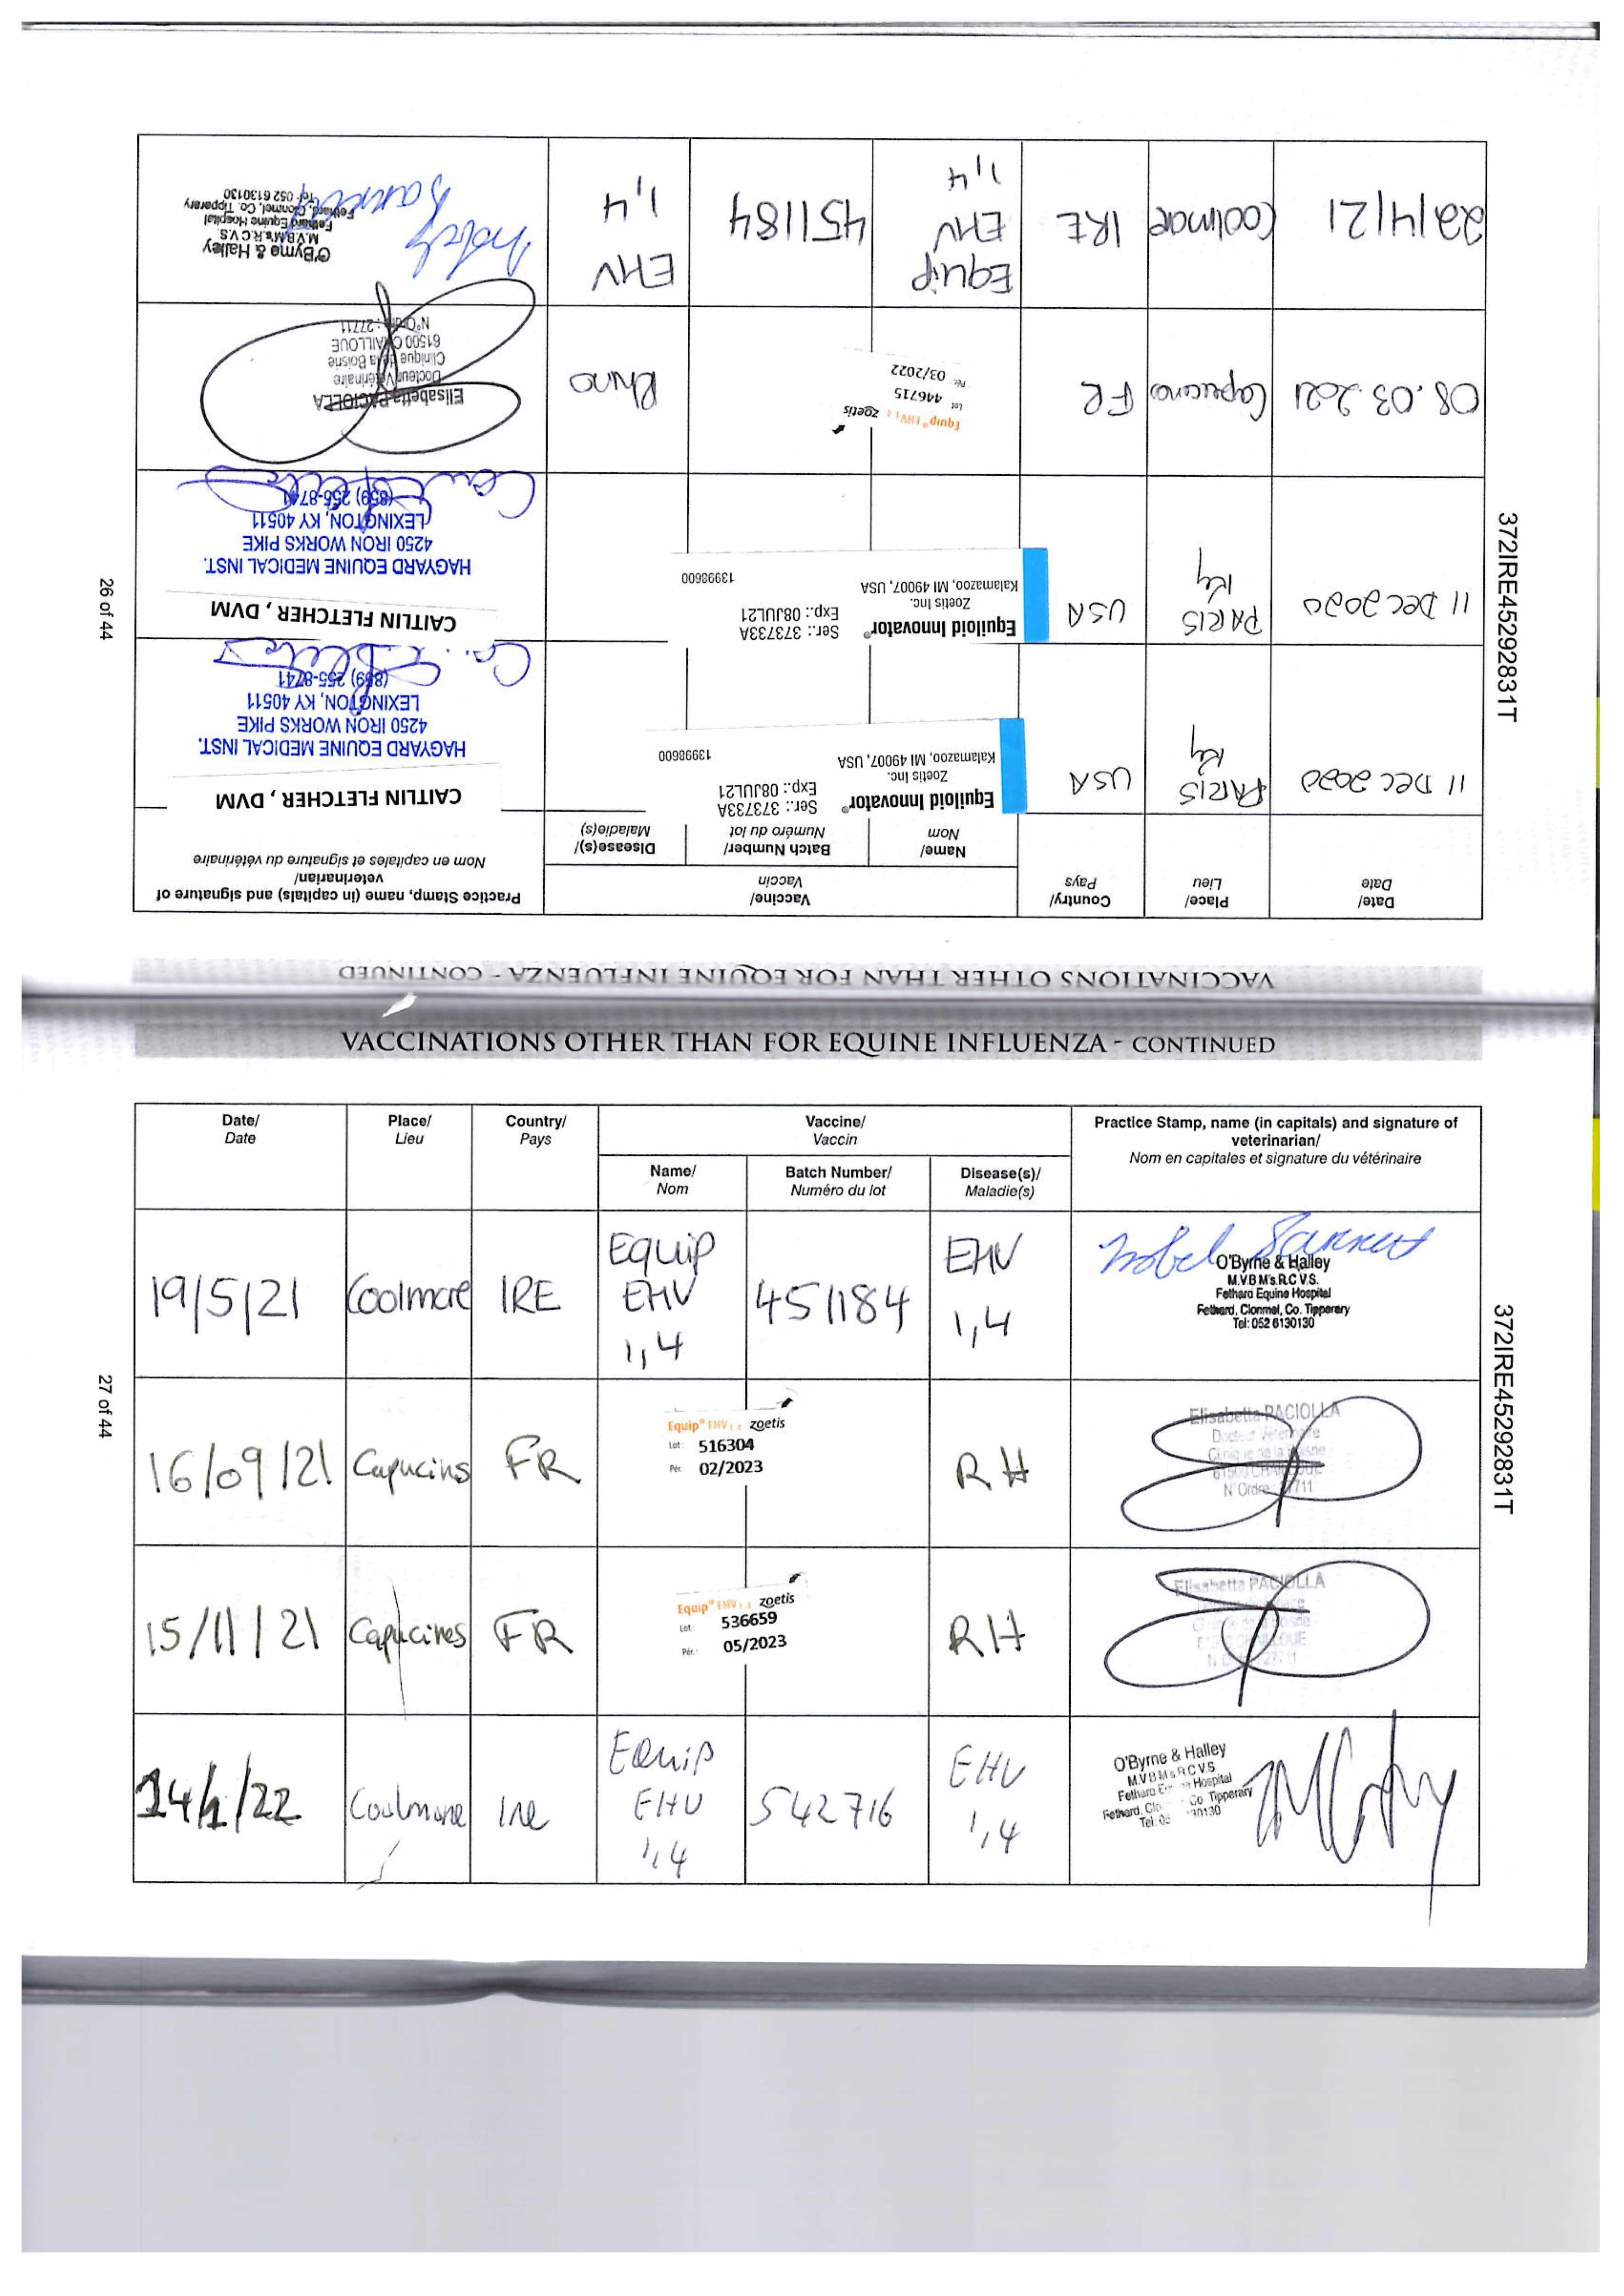 VACCINATIONS OTHER THAN FOR EQUINE INFLUENZA - CONTINUED
Date/
Date
Place/
Lieu
Country/
Pays
Vaccine/
Vaccin
Name/
Nom
Batch Number/
Numéro du lot
Disease(s)/
Maladie(s)
Practice Stamp, name (in capitals) and signature of
veterinarian/
Nom en capitales et signature du vétérinaire
11 DEC 2020
PARIS
Ky
USA
Equiloid Innovator®
Zoetis Inc.
Kalamazoo, MI 49007, USA
Ser.: 373733A
Exp.: 08JUL21
13998600
CAITLIN FLETCHER, DVM
HAGYARD EQUINE MEDICAL INST.
4250 IRON WORKS PIKE
LEXINGTON, KY 40511
(859) 255-8741
11 DEC 2020
PARIS
Ky
USA
Equiloid Innovator®
Zoetis Inc.
Kalamazoo, MI 49007, USA
Ser.: 373733A
Exp.: 08JUL21
13998600
CAITLIN FLETCHER, DVM
HAGYARD EQUINE MEDICAL INST.
4250 IRON WORKS PIKE
LEXINGTON, KY 40511
(859) 255-8741
08.03.2021
FR
Equip® EHV 1,4 zoetis
Lot 446715
Pér. 03/2022
Rhino
Elisabetta PACIOLLA
Docteur Vétérinaire
Clinique de la Boisne
61500 CHAILLOUE
N°Ordre: 27711
22/4/21
Coolmore
IRE
Equip
EHV
1,4
451184
EHV
1,4
O'Byrne & Halley
M.V.B M's.R.C.V.S.
Fethard Equine Hospital
Fethard, Clonmel, Co. Tipperary
Tel: 052 6130130
372IRE45292831T
26 of 44
VACCINATIONS OTHER THAN FOR EQUINE INFLUENZA - CONTINUED
Date/
Date
Place/
Lieu
Country/
Pays
Vaccine/
Vaccin
Name/
Nom
Batch Number/
Numéro du lot
Disease(s)/
Maladie(s)
Practice Stamp, name (in capitals) and signature of
veterinarian/
Nom en capitales et signature du vétérinaire
19/5/21
Coolmore
IRE
Equip
EHV
1,4
451184
EHV
1,4
O'Byrne & Halley
M.V.B M's.R.C V.S.
Fethard Equine Hospital
Fethard, Clonmel, Co. Tipperary
Tel: 052 6130130
16/09/21
Capucins
FR
Equip® EHV 1,4 zoetis
Lot: 516304
Pér. 02/2023
RH
Elisabetta PACIOLLA
Docteur Vétérinaire
Clinique de la Boisne
61500 CHAILLOUE
N°Ordre 27711
15/11/21
Capucines
FR
Equip® EHV 1,4 zoetis
Lot: 536659
Pér.: 05/2023
RH
Elisabetta PACIOLLA
14/1/22
Coolmore
Ire
Equip
EHV
1,4
542716
EHV
1,4
O'Byrne & Halley
M.V B M s R.C V.S
Fethard Hospital
Fethard, Co Tipperary
372IRE45292831T
27 of 44